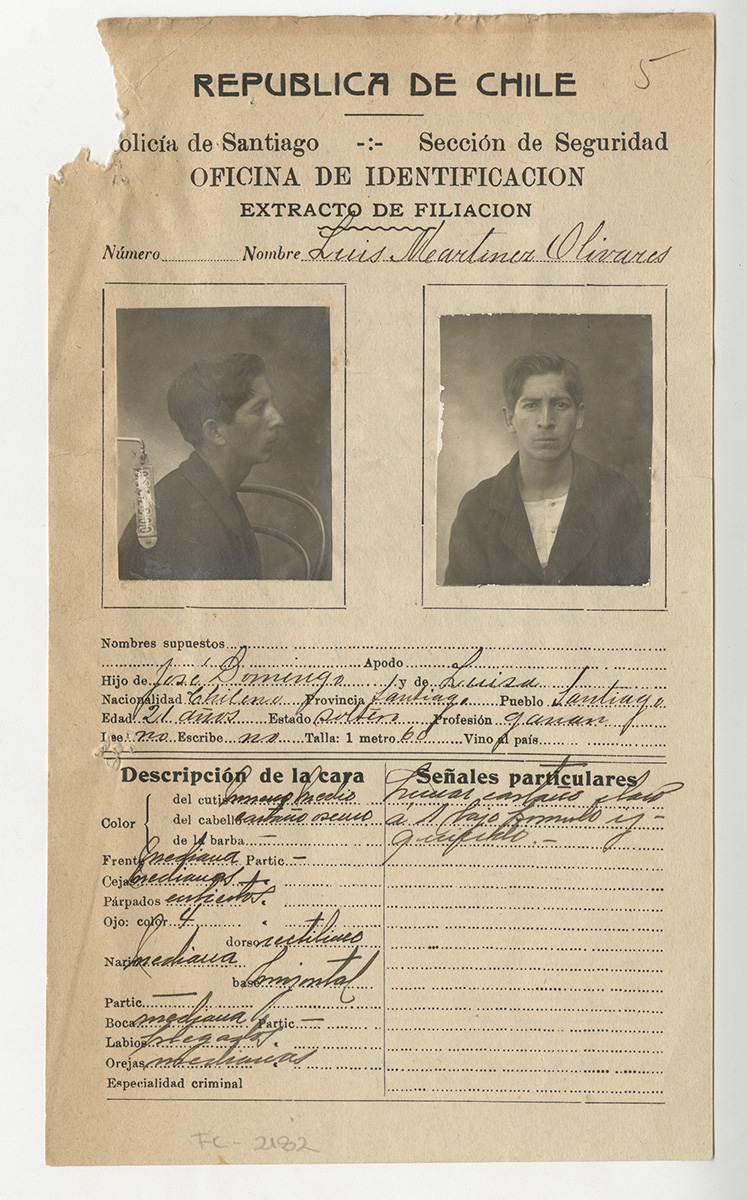 5
REPUBLICA DE CHILE
olicía de Santiago -:- Sección de Seguridad
OFICINA DE IDENTIFICACION
EXTRACTO DE FILIACION
Número Nombre Luis Martinez Olivares
Nombres supuestos
Apodo
Hijo de José Domingo y de Luisa
Nacionalidad Chileno Provincia Santiago Pueblo Santiago
Edad 21 años Estado soltero Profesión gañan
Lee no Escribe no Talla: 1 metro 60 Vino al país
Descripción de la cara
Señales particulares
Color
del cutis moreno medio
del cabello castaño oscuro
de la barba —
Lunar castaño claro
á 1 bajo pomulo izquierdo.-
Frente mediana Partic —
Cejas medianas
Párpados
Ojo: color 4
dorso rectilineo
Nariz mediana
base horizontal
Partic. —
Boca mediana Partic —
Labios
Orejas medianas
Especialidad criminal
FC-2182